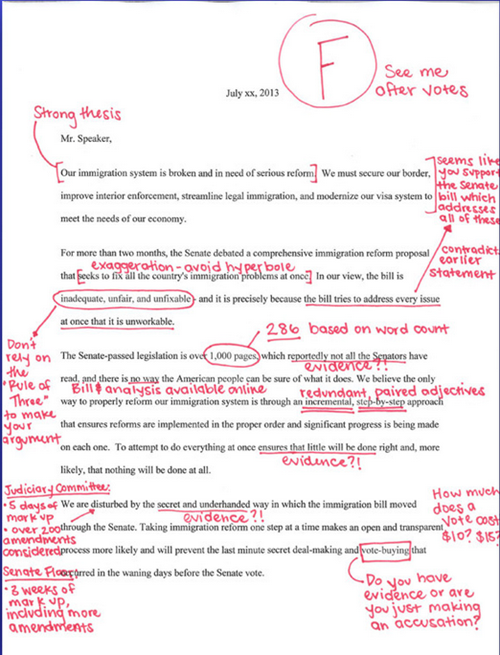 F
See me
after votes
July xx, 2013
Strong thesis
Mr. Speaker,
[Our immigration system is broken and in need of serious reform.] We must secure our border,
improve interior enforcement, streamline legal immigration, and modernize our visa system to
meet the needs of our economy.
seems like
you support
the Senate
bill which
addresses
all of these
For more than two months, the Senate debated a comprehensive immigration reform proposal
that [seeks to fix all the country's immigration problems at once.] In our view, the bill is
exaggeration - avoid hyperbole
inadequate, unfair, and unfixable – and it is precisely because the bill tries to address every issue
at once that it is unworkable.
contradicts
earlier
statement
286 based on word count
Don't
rely on
the
"Rule of
Three"
to make
your
argument
The Senate-passed legislation is over 1,000 pages, which reportedly not all the Senators have
evidence?!
read, and there is no way the American people can be sure of what it does. We believe the only
Bill & analysis available online
redundant, paired adjectives
way to properly reform our immigration system is through an incremental, step-by-step approach
that ensures reforms are implemented in the proper order and significant progress is being made
on each one. To attempt to do everything at once ensures that little will be done right and, more
evidence?!
likely, that nothing will be done at all.
Judiciary Committee:
• 5 days of
mark up
• over 200
amendments
considered
We are disturbed by the secret and underhanded way in which the immigration bill moved
evidence?!
through the Senate. Taking immigration reform one step at a time makes an open and transparent
process more likely and will prevent the last minute secret deal-making and vote-buying that
occurred in the waning days before the Senate vote.
How much
does a
vote cost
$10? $15?
Senate Floor:
• 3 weeks of
mark up,
including more
amendments
Do you have
evidence or are
you just making
an accusation?